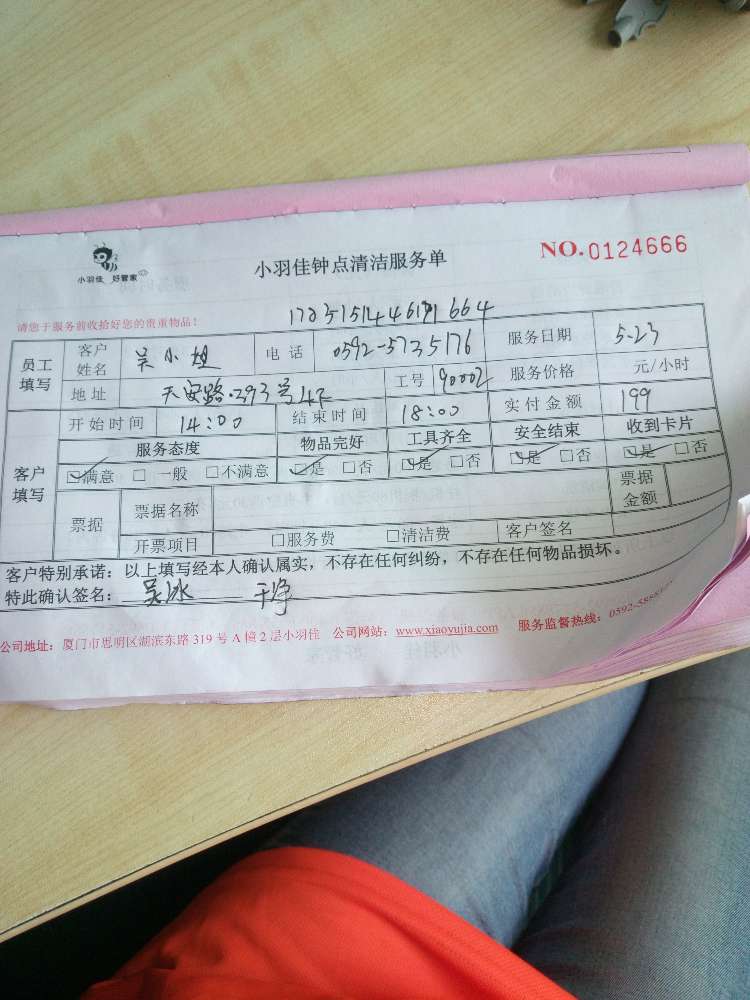 小羽佳 好管家
小羽佳钟点清洁服务单
NO.0124666
请您于服务前收拾好您的贵重物品!
员工填写 客户姓名 吴小姐 电话 0592-5735176 服务日期 5.23
地址 天安路.293号4F 工号 90002 服务价格 元/小时
开始时间 14:00 结束时间 18:00 实付金额 199
客户填写 服务态度 物品完好 工具齐全 安全结束 收到卡片
☑满意 □一般 □不满意 ☑是 □否 ☑是 □否 ☑是 □否 ☑是 □否
票据 票据名称 票据金额
开票项目 □服务费 □清洁费 客户签名
客户特别承诺:以上填写经本人确认属实,不存在任何纠纷,不存在任何物品损坏。
特此确认签名: 吴冰 干净
公司地址:厦门市思明区湖滨东路319号A幢2层小羽佳 公司网站:www.xiaoyujia.com 服务监督热线:0592-5555